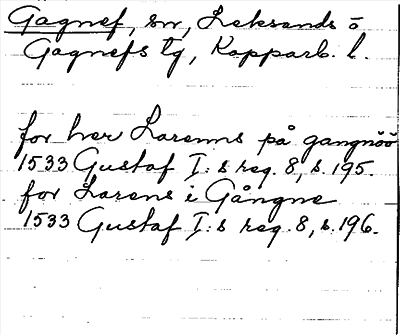 Gagnef, sn, Leksands o
Gagnefs tg, Kopparb. l.
for her Larenns på gangnöö
1533 Gustaf I:s reg. 8, s. 195.
for Larens i Gångne
1533 Gustaf I:s reg. 8, s. 196.